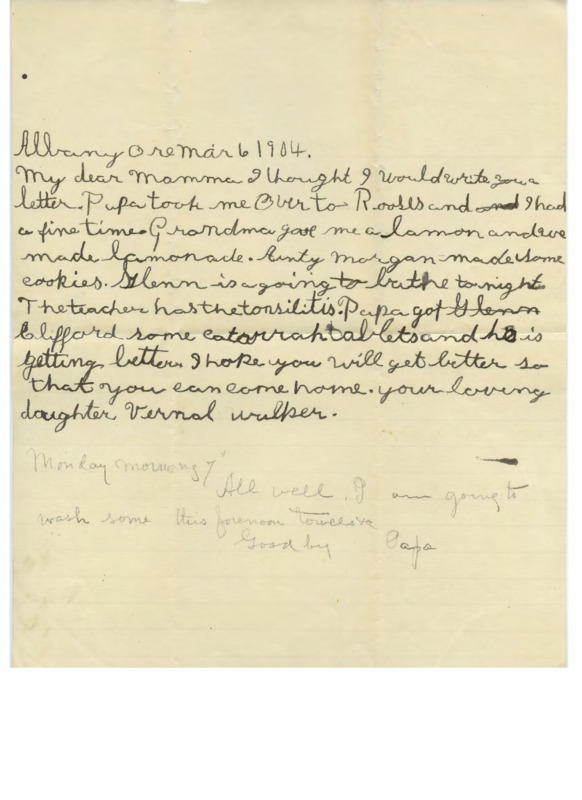 Albany Ore Mar 6 1904.
My dear Mamma I thought I would write you a
letter. Papa took me Over to Roolls and and I had
a fine time. Grandma gave me a lamon and we
made lamonade. Aunty Morgan made some
cookies. Glenn is a going to bathe to night.
The teacher has the tonsilitis. Papa got Glenn
Clifford some catarrah tablets and he is
getting better. I hope you will get better so
that you can come home. your loving
daughter Vernal walker.
Monday morning 7"
All well. I am going to
wash some this forenoon towels &c
Good by Papa